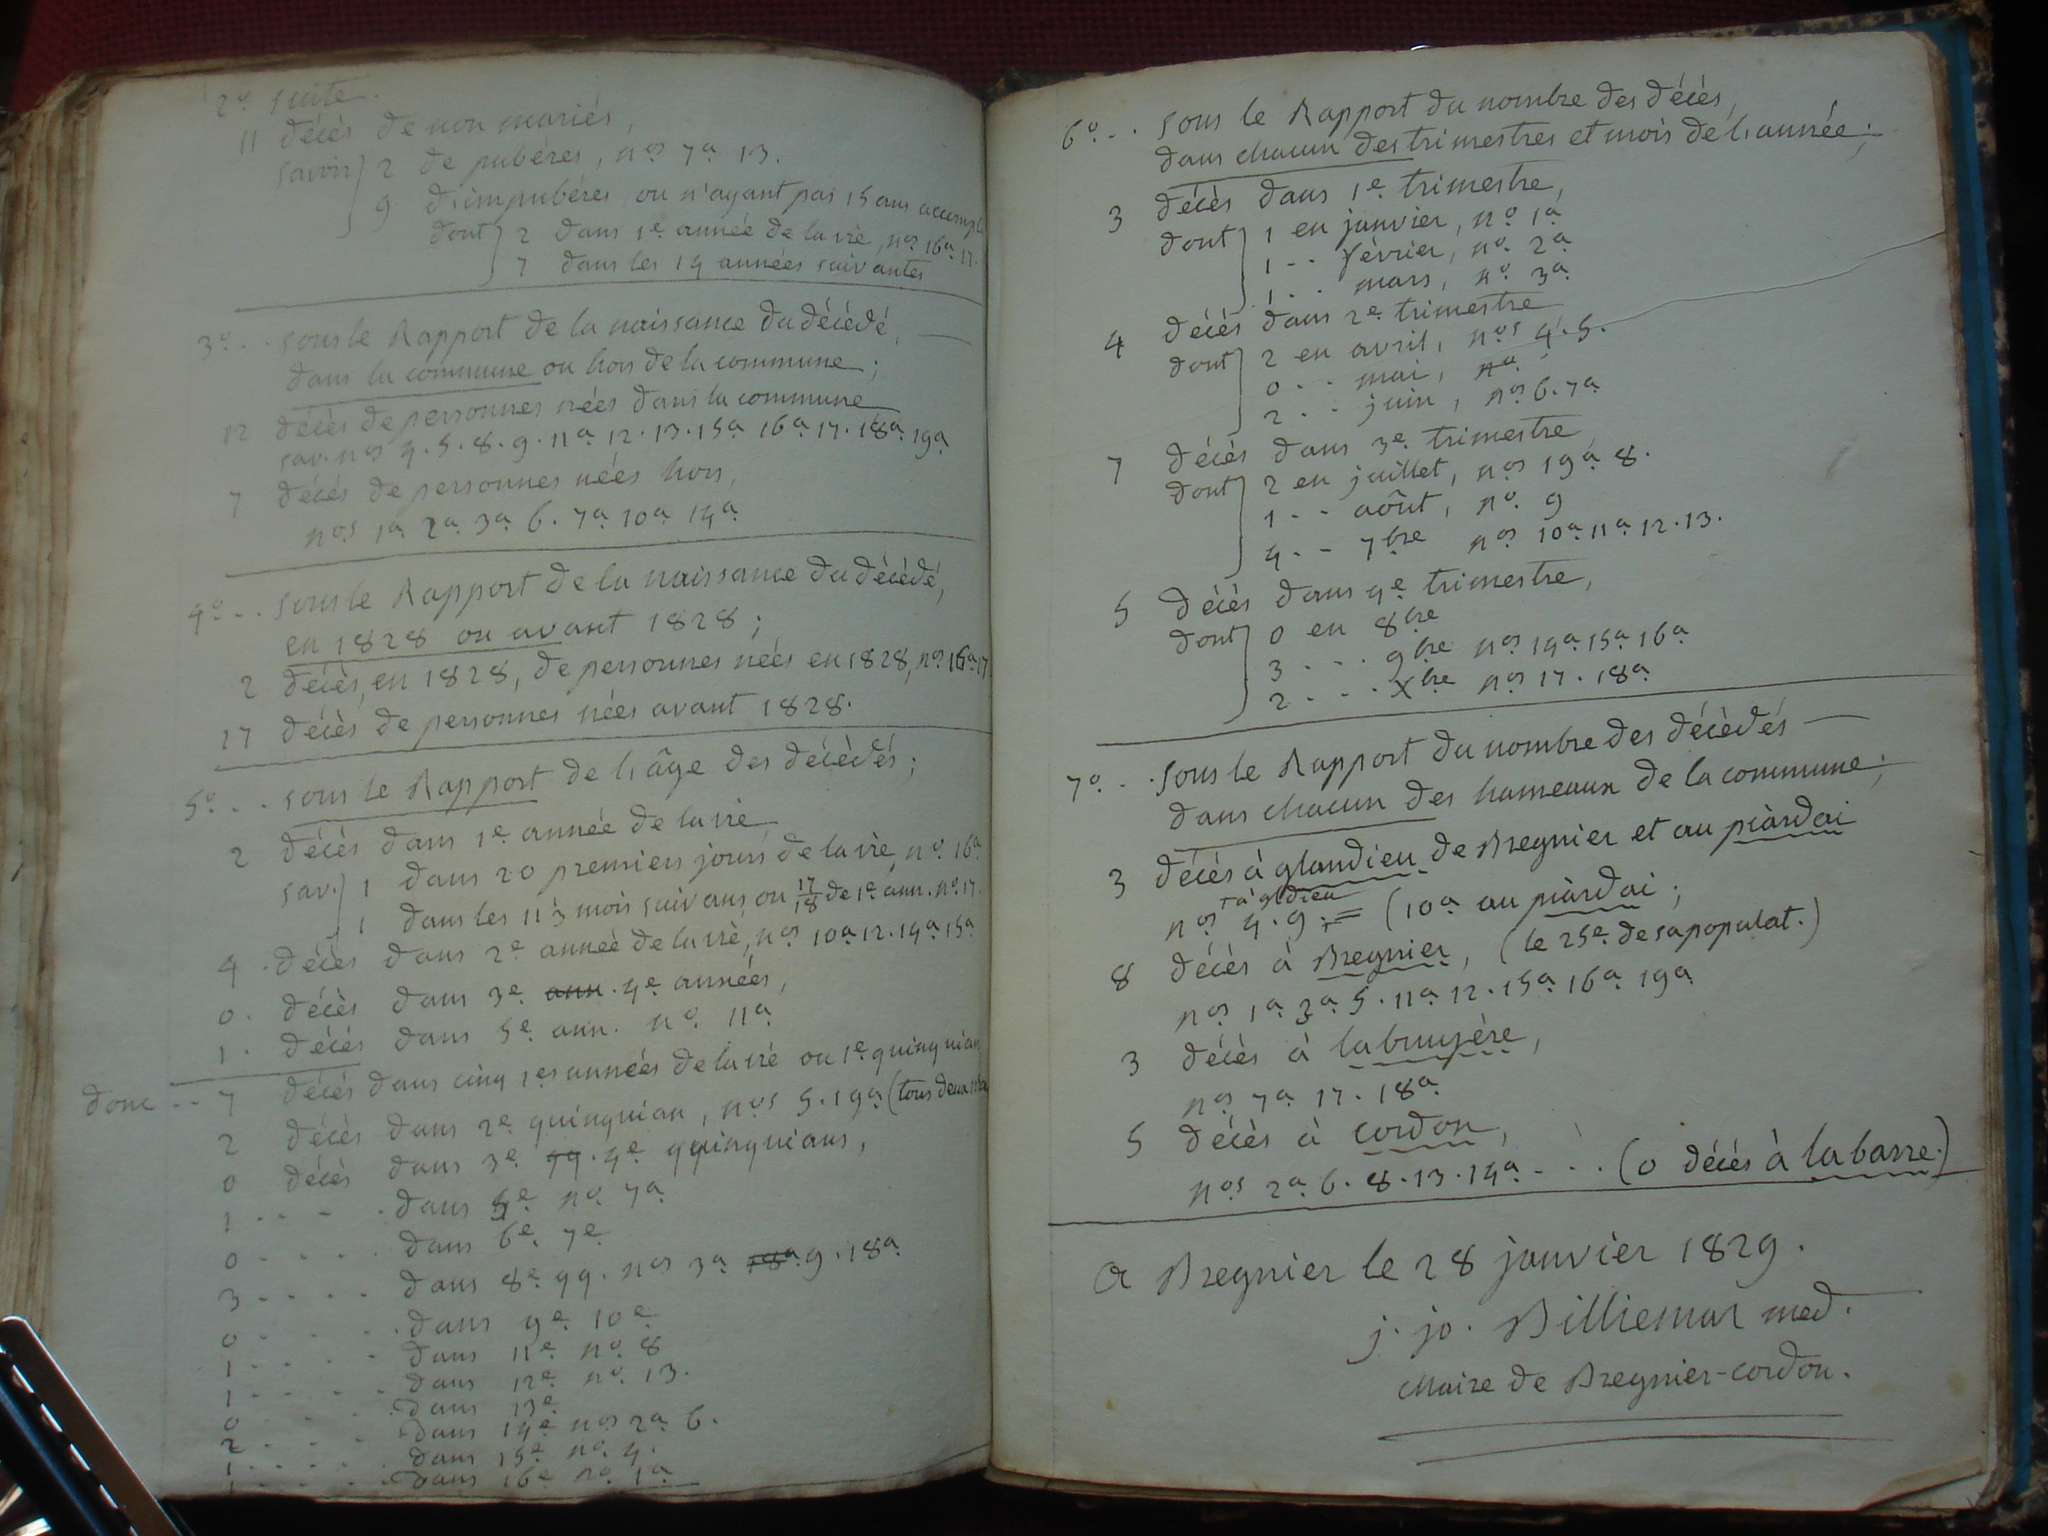 2º suite.
11 décès de non mariés,
savoir 2 de pubéres, nos 7a 13.
9 d'impubéres ou n'ayant pas 15 ans accompl
dont 2 dans 1e année de la vie, nos 16a. 17.
7 dans les 14 années suivantes
3º.. sous le Rapport de la naissance du décédé,
dans la commune ou hors de la commune;
12 décès de personnes nées dans la commune
sav. nos 4. 5. 8. 9. 11a 12. 13. 15a 16a 17. 18a 19a
7 décés de personnes nées hors,
nos 1a 2a 3a 6. 7a 10a 14a
4º.. sous le Rapport de la naissance du décédé,
en 1828 ou avant 1828;
2 décès, en 1828, de personnes nées en 1828, nos 16a 17
17 décès de personnes nées avant 1828.
5º... sous le Rapport de l'âge des décèdés;
2 décès dans 1e année de la vie,
sav. 1 dans 20 premiers jours de la vie, nº 16a
1 dans les 11 3 mois suivans, ou 17/18 de 1e ann. nº 17.
4. décès dans 2e année de la vie, nos 10a 12. 14a 15a
0. décès dans 3e ann. 4e années,
1. décés dans 5e ann. nº 11a
donc .. 7 décés dans cinq 1es années de la vie ou 1e quinquian
2 décès dans 2e quinquian, nos 5. 19a (tous deux
0 décès dans 3e qq. 4e qquinquians,
1 .. - . dans 5e nº 7a
0 .... dans 6e. 7e
3 .... dans 8e qq. nos 3a 18a 9. 18a
0 .... dans 9e. 10e
1 .... dans 11e nº 8
1 .... dans 12e nº 13.
0 .... dans 13e
2 .... dans 14e nos 2a 6.
1 .... dans 15e nº 4.
1 .... dans 16e nº 1a
6º.. sous le Rapport du nombre des décès,
dans chacun des trimestres et mois de l'année;
3 décès dans 1e trimestre,
dont 1 en janvier, nº 1a
1 .. février, nº 2a
1 .. mars, nº 3a
4 décès dans 2e trimestre
dont 2 en avril, nos 4. 5.
0 .. mai, nº
2 .. juin, nos 6. 7a
7 décès dans 3e trimestre,
dont 2 en juillet, nos 19a 8.
1 .. août, nº 9
4 .. 7bre nos 10a 11a 12. 13.
5 décès dans 4e trimestre,
dont 0 en 8bre
3 ... 9bre nos 14a 15a 16a
2 ... Xbre nos 17. 18a
7º.. sous le Rapport du nombre des décèdés
dans chacun des hameaux de la commune;
3 décès à glandieu de Bregnier et au piàrdai
à gldieu
nos 4. 9. = (10a au piàrdai;
8 décès à Bregnier, (le 25e de sa populat.)
nos 1a 3a 5. 11a 12. 15a 16a 19a
3 décès à labruyère,
nos 7a 17. 18a
5 décès à cordon,
nos 2a 6. 8. 13. 14a - .. (0 décés à labarre.)
a Bregnier le 28 janvier 1829.
j. jo. Billiemaz med.
Maire de Bregnier-cordon.